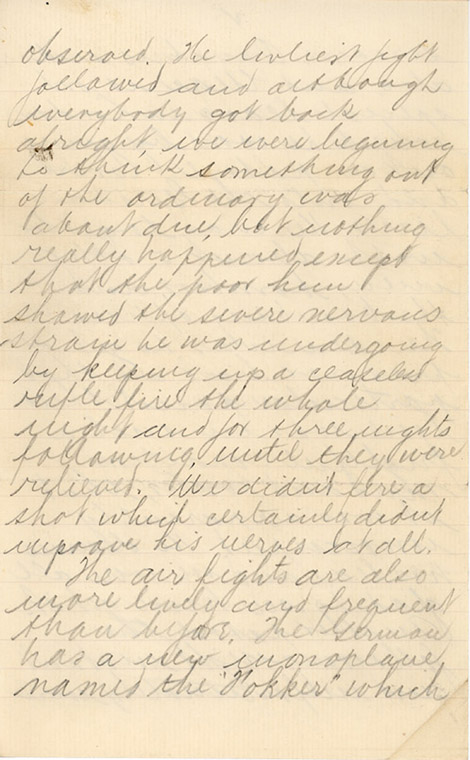 observed. The livliest fight
followed and although
everybody got back
alright, we were beginning
to think something out
of the ordinary was
about due, but nothing
really happened except
that the poor hun
showed the severe nervous
strain he was undergoing
by keeping up a ceaseless
rifle fire the whole
night and for three nights
following, until they were
relieved. We didn't fire a
shot which certainly didn't
improve his nerves at all.
The air fights are also
more lively and frequent
than before. The German
has a new monoplane
named the "Fokker" which